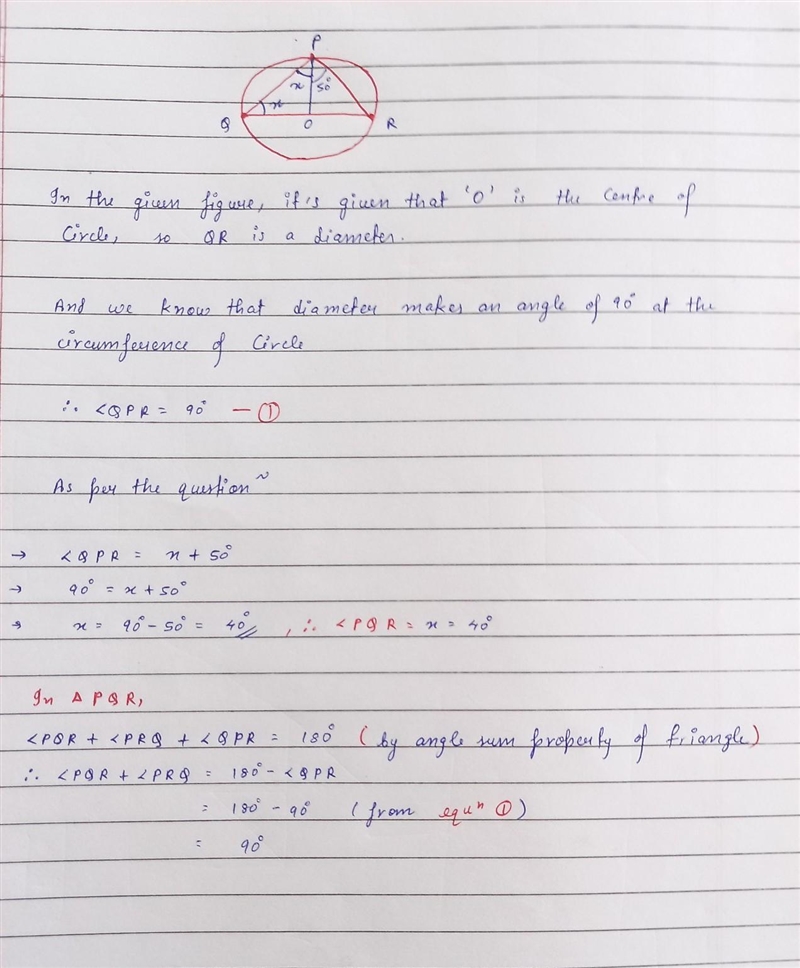 P
x 50°
x
Q O R
In the given figure, it's given that 'O' is the Centre of
Circle, so QR is a diameter.
And we know that diameter makes an angle of 90° at the
circumference of Circle
∴ ∠QPR = 90° — ①
As per the question ~
→ ∠QPR = x + 50°
→ 90° = x + 50°
→ x = 90° - 50° = 40° , ∴ ∠PQR = x = 40°
In △ PQR,
∠PQR + ∠PRQ + ∠QPR = 180° (by angle sum property of triangle)
∴ ∠PQR + ∠PRQ = 180° - ∠QPR
= 180° - 90° (from equⁿ ①)
= 90°